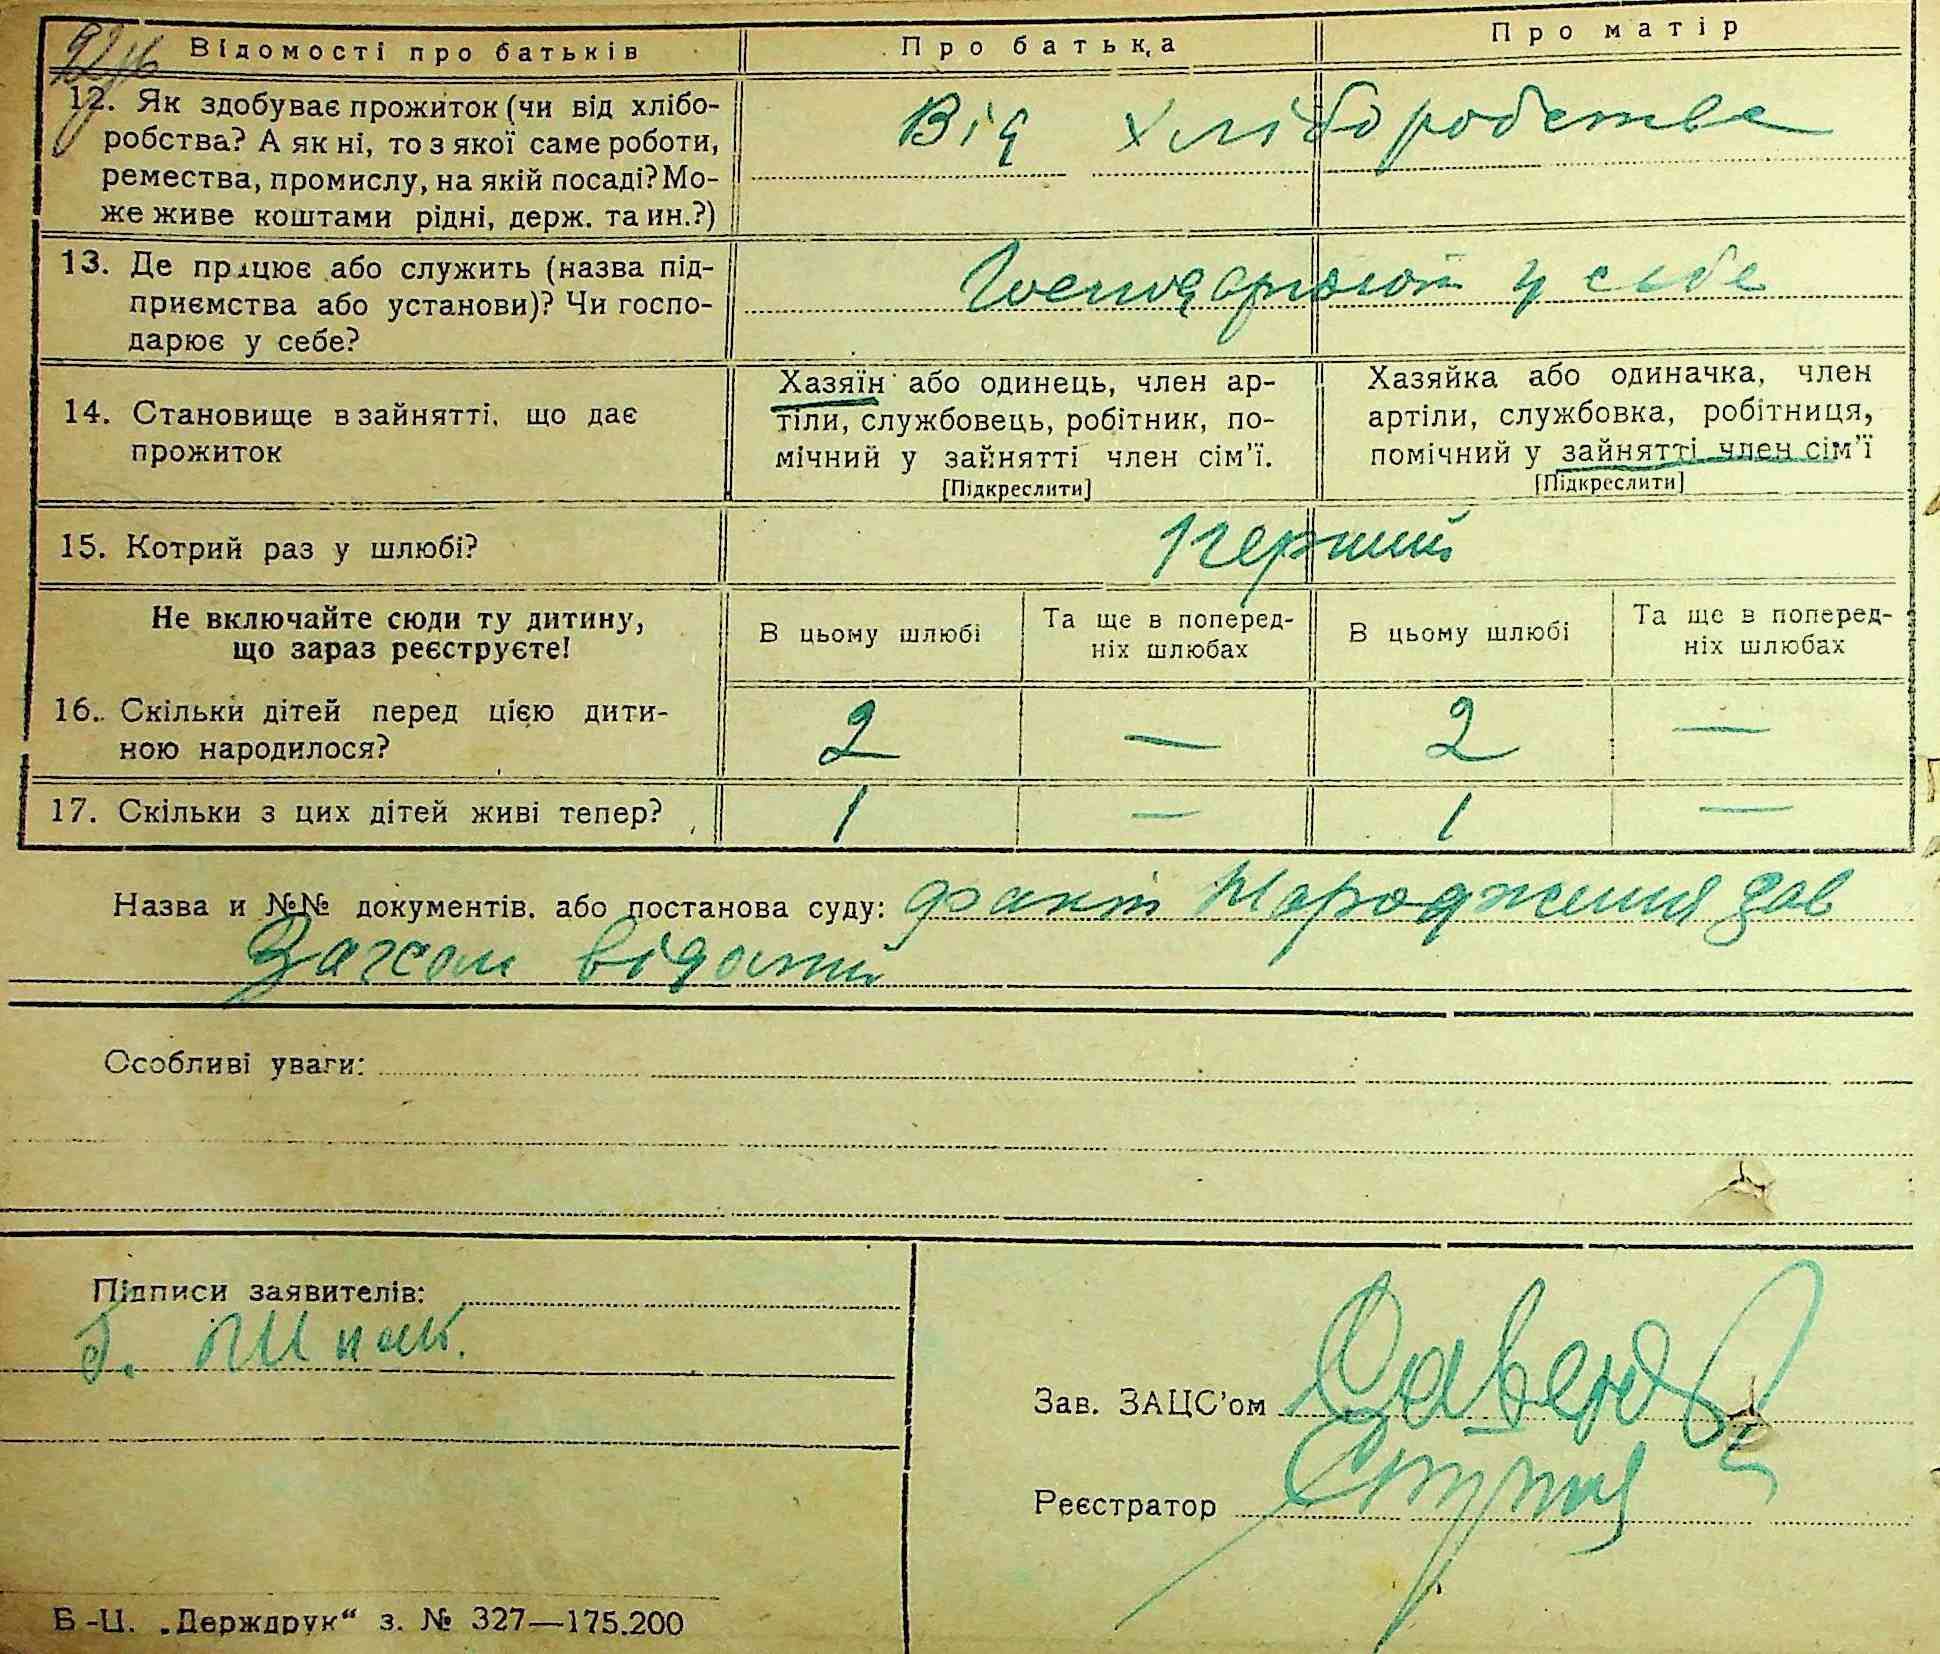 Відомості про батьків Про батька Про матір
12. Як здобуває прожиток (чи від хлібо-
робства? А як ні, то з якої саме роботи,
ремества, промислу, на якій посаді? Мо-
же живе коштами рідні, держ. та ин.?)
Від хліборобства
13. Де працює або служить (назва під-
приємства або установи)? Чи госпо-
дарює у себе?
Господарюют у себе
14. Становище в зайнятті, що дає
прожиток
Хазяїн або одинець, член ар-
тіли, службовець, робітник, по-
мічний у зайнятті член сім'ї.
[Підкреслити]
Хазяйка або одиначка, член
артіли, службовка, робітниця,
помічний у зайнятті член сім'ї
[Підкреслити]
15. Котрий раз у шлюбі? Перший
Не включайте сюди ту дитину,
що зараз реєструєте!
В цьому шлюбі
Та ще в поперед-
ніх шлюбах
В цьому шлюбі
Та ще в поперед-
ніх шлюбах
16. Скільки дітей перед цією дити-
ною народилося?
2 — 2 —
17. Скільки з цих дітей живі тепер? 1 — 1 —
Назва и №№ документів. або постанова суду: факт народження
відомий
Особливі уваги:
Підписи заявителів:
Зав. ЗАЦС'ом
Реєстратор
Б-Ц. „Держдрук“ з. № 327—175.200